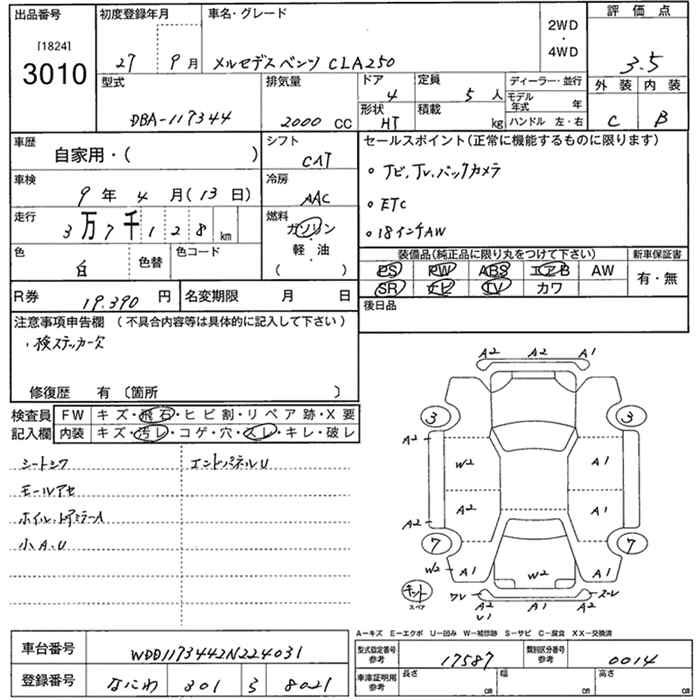 出品番号 初度登録年月 車名・グレード 2WD ・ 4WD 評価点
[1824]
3010 27年9月 メルセデスベンツ CLA250 3.5
型式 排気量 ドア 定員 ディーラー・並行 外装 内装
DBA-117344 2000 CC 4 5人 モデル年式 年 C B
形状 HT 積載 kg ハンドル 左・右
車歴 自家用・( ) シフト CAT セールスポイント(正常に機能するものに限ります)
車検 9年4月(13日) 冷房 AAC ・ナビ、TV、バックカメラ
走行 3万7千128km 燃料 ガソリン・軽油 ( ) ・ETC
・18インチAW
色 白 色替 色コード 装備品(純正品に限り丸をつけて下さい) 新車保証書
PS PW ABS エアB AW 有・無
SR ナビ TV カワ
R券 19,390円 名変期限 月 日 後日品
注意事項申告欄 (不具合内容等は具体的に記入して下さい)
・検ステッカー欠
修復歴 有 〔箇所 〕
検査員 FW キズ・飛石・ヒビ割・リペア跡・X要
記入欄 内装 キズ・汚レ・コゲ・穴・スレ・キレ・破レ
シートシワ エンドパネルU
モールアセ
ホイル、ドアミラーA
小A、U
A2 A2 A1
3 3
A2 W2 A1
A2 A2 A1
7 7
W2 A1 W2 A1
キット スペア ワレ A2 A2 スレ
U1
A-キズ E-エクボ U-凹み W-補修跡 S-サビ C-腐食 XX-交換済
車台番号 WDD1173442N224031 型式指定番号 参考 17587 類別区分番号 参考 0014
登録番号 なにわ 301 さ 8021 車庫証明用 参考 長さ cm 幅 cm 高さ cm